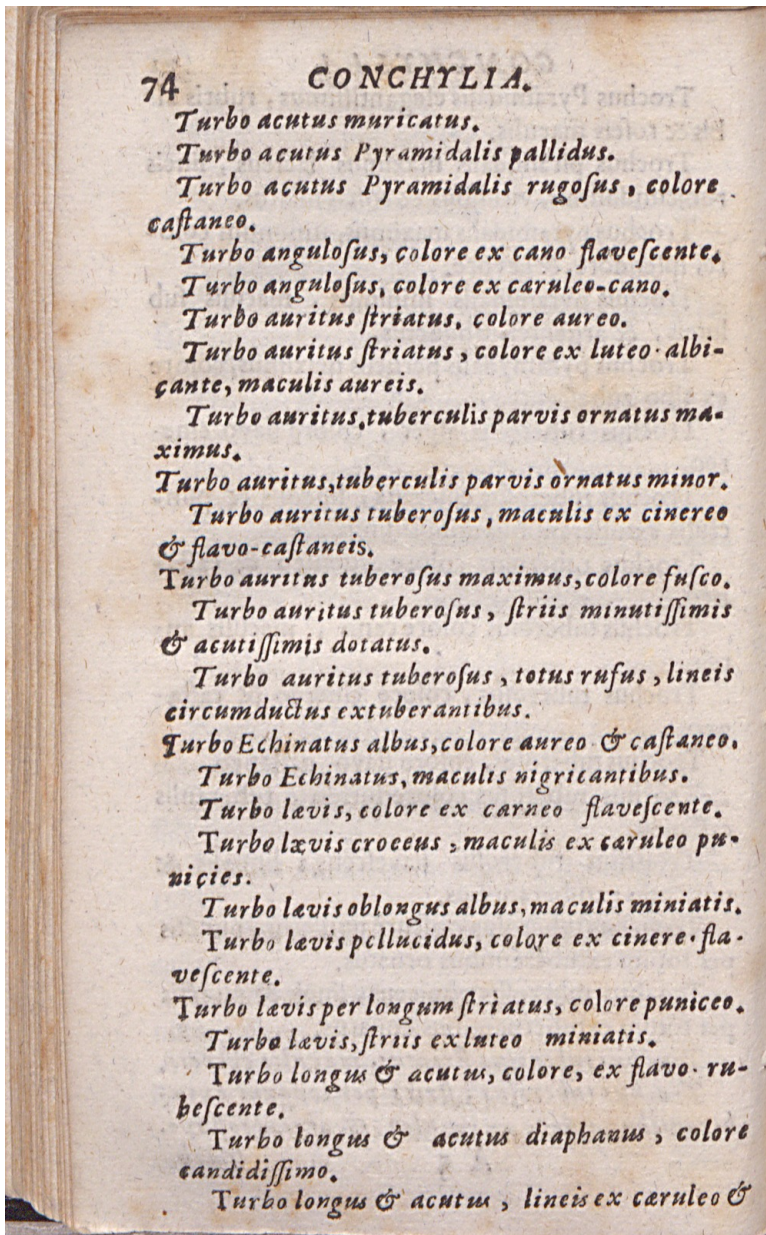 74 CONCHYLIA.
Turbo acutus muricatus.
Turbo acutus Pyramidalis pallidus.
Turbo acutus Pyramidalis rugoſus, colore
caſtaneo.
Turbo anguloſus, colore ex cano flaveſcente.
Turbo anguloſus, colore ex cæruleo-cano.
Turbo auritus ſtriatus, colore aureo.
Turbo auritus ſtriatus, colore ex luteo-albi-
çante, maculis aureis.
Turbo auritus, tuberculis parvis ornatus ma-
ximus.
Turbo auritus, tuberculis parvis ornatus minor.
Turbo auritus tuberoſus, maculis ex cinereo
& flavo-caſtaneis.
Turbo auritus tuberoſus maximus, colore fuſco.
Turbo auritus tuberoſus, ſtriis minutiſſimis
& acutiſſimis dotatus.
Turbo auritus tuberoſus, totus rufus, lineis
circumductus extuberantibus.
Turbo Echinatus albus, colore aureo & caſtaneo.
Turbo Echinatus, maculis nigricantibus.
Turbo lævis, colore ex carneo flaveſcente.
Turbo lævis croceus, maculis ex cæruleo pu-
niçies.
Turbo lævis oblongus albus, maculis miniatis.
Turbo lævis pellucidus, colore ex cinere-fla-
veſcente.
Turbo lævis per longum ſtriatus, colore puniceo.
Turbo lævis, ſtriis ex luteo miniatis.
Turbo longus & acutus, colore, ex flavo-ru-
beſcente.
Turbo longus & acutus diaphanus, colore
candidiſſimo.
Turbo longus & acutus, lineis ex cæruleo &